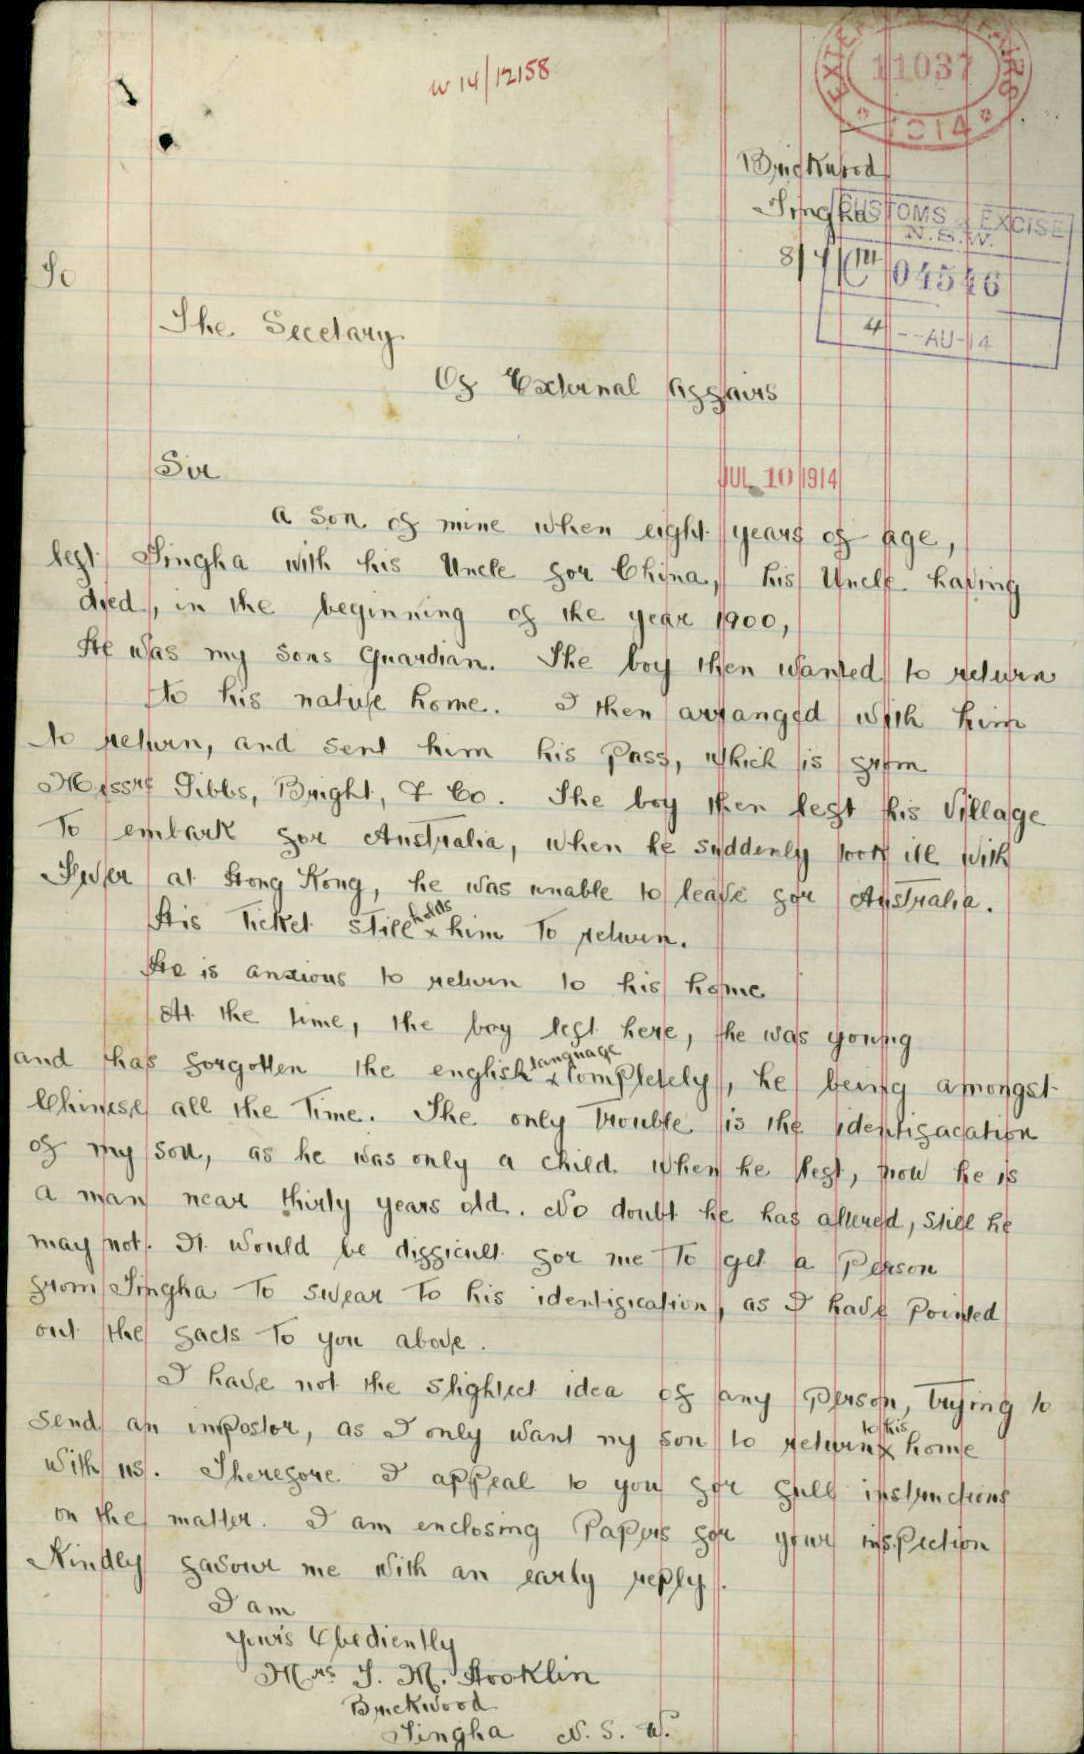 W 14/12158
EXTERNAL AFFAIRS
11037
1914
Brickwood
Tingha
CUSTOMS & EXCISE
N.S.W.
8/7/14
C 04546
4--AU-14
To
The Secetary
Of External Affairs
Sir
JUL 10 1914
A son of mine when eight years of age,
left Tingha with his Uncle for China, his Uncle having
died, in the beginning of the year 1900,
He was my sons Guardian. The boy then wanted to return
to his native home. I then arranged with him
to return, and sent him his Pass, which is from
Messrs Gibbs, Bright, & Co. The boy then left his Village
To embark for Australia, when he suddenly took ill with
Fever at Hong Kong, he was unable to leave for Australia.
His Ticket still holds x him To return.
He is anxious to return to his home
At the time, the boy left here, he was young
and has forgotten the english language x completely, he being amongst
Chinese all the Time. The only Trouble is the identifacation
of my son, as he was only a child when he left, now he is
a man near thirty years old. No doubt he has altered, still he
may not. It would be difficult for me To get a Person
from Tingha To swear To his identification, as I have Pointed
out the facts To you above.
I have not the slightest idea of any Person, Trying to
send an impostor, as I only want my son to return to his x home
With us. Therefore I appeal to you for full instructions
on the matter. I am enclosing Papers for your inspection
Kindly favour me with an early reply.
I am
Yours Obediently
Mrs T. M. Hooklin
Brickwood
Tingha N. S. W.